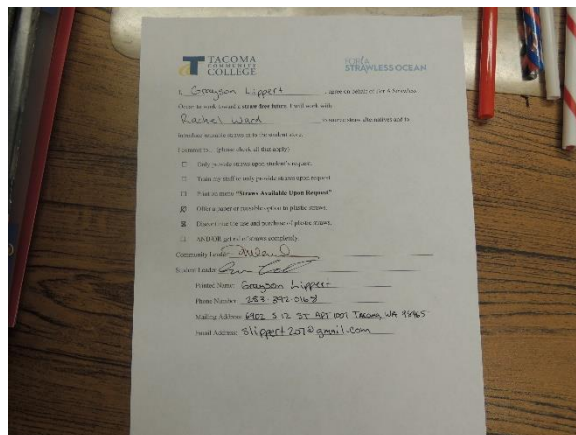 TACOMA
COMMUNITY
COLLEGE
FOR A
STRAWLESS OCEAN
I, Grayson Lippert, agree on behalf of For A Strawless
Ocean to work toward a straw free future. I will work with
Rachel Ward to source straw alternatives and to
introduce reusable straws in to the student store.
I commit to... (please check all that apply)
Only provide straws upon student's request.
Train my staff to only provide straws upon request
Print on menu "Straws Available Upon Request"
Offer a paper or reusable option to plastic straws.
Discontinue the use and purchase of plastic straws.
AND/OR get rid of straws completely.
Community Leader
Student Leader
Printed Name: Grayson Lippert
Phone Number: 253-392-0168
Mailing Address: 6902 S 12 ST APT 1007 Tacoma, WA 98465
Email Address: slippert207@gmail.com